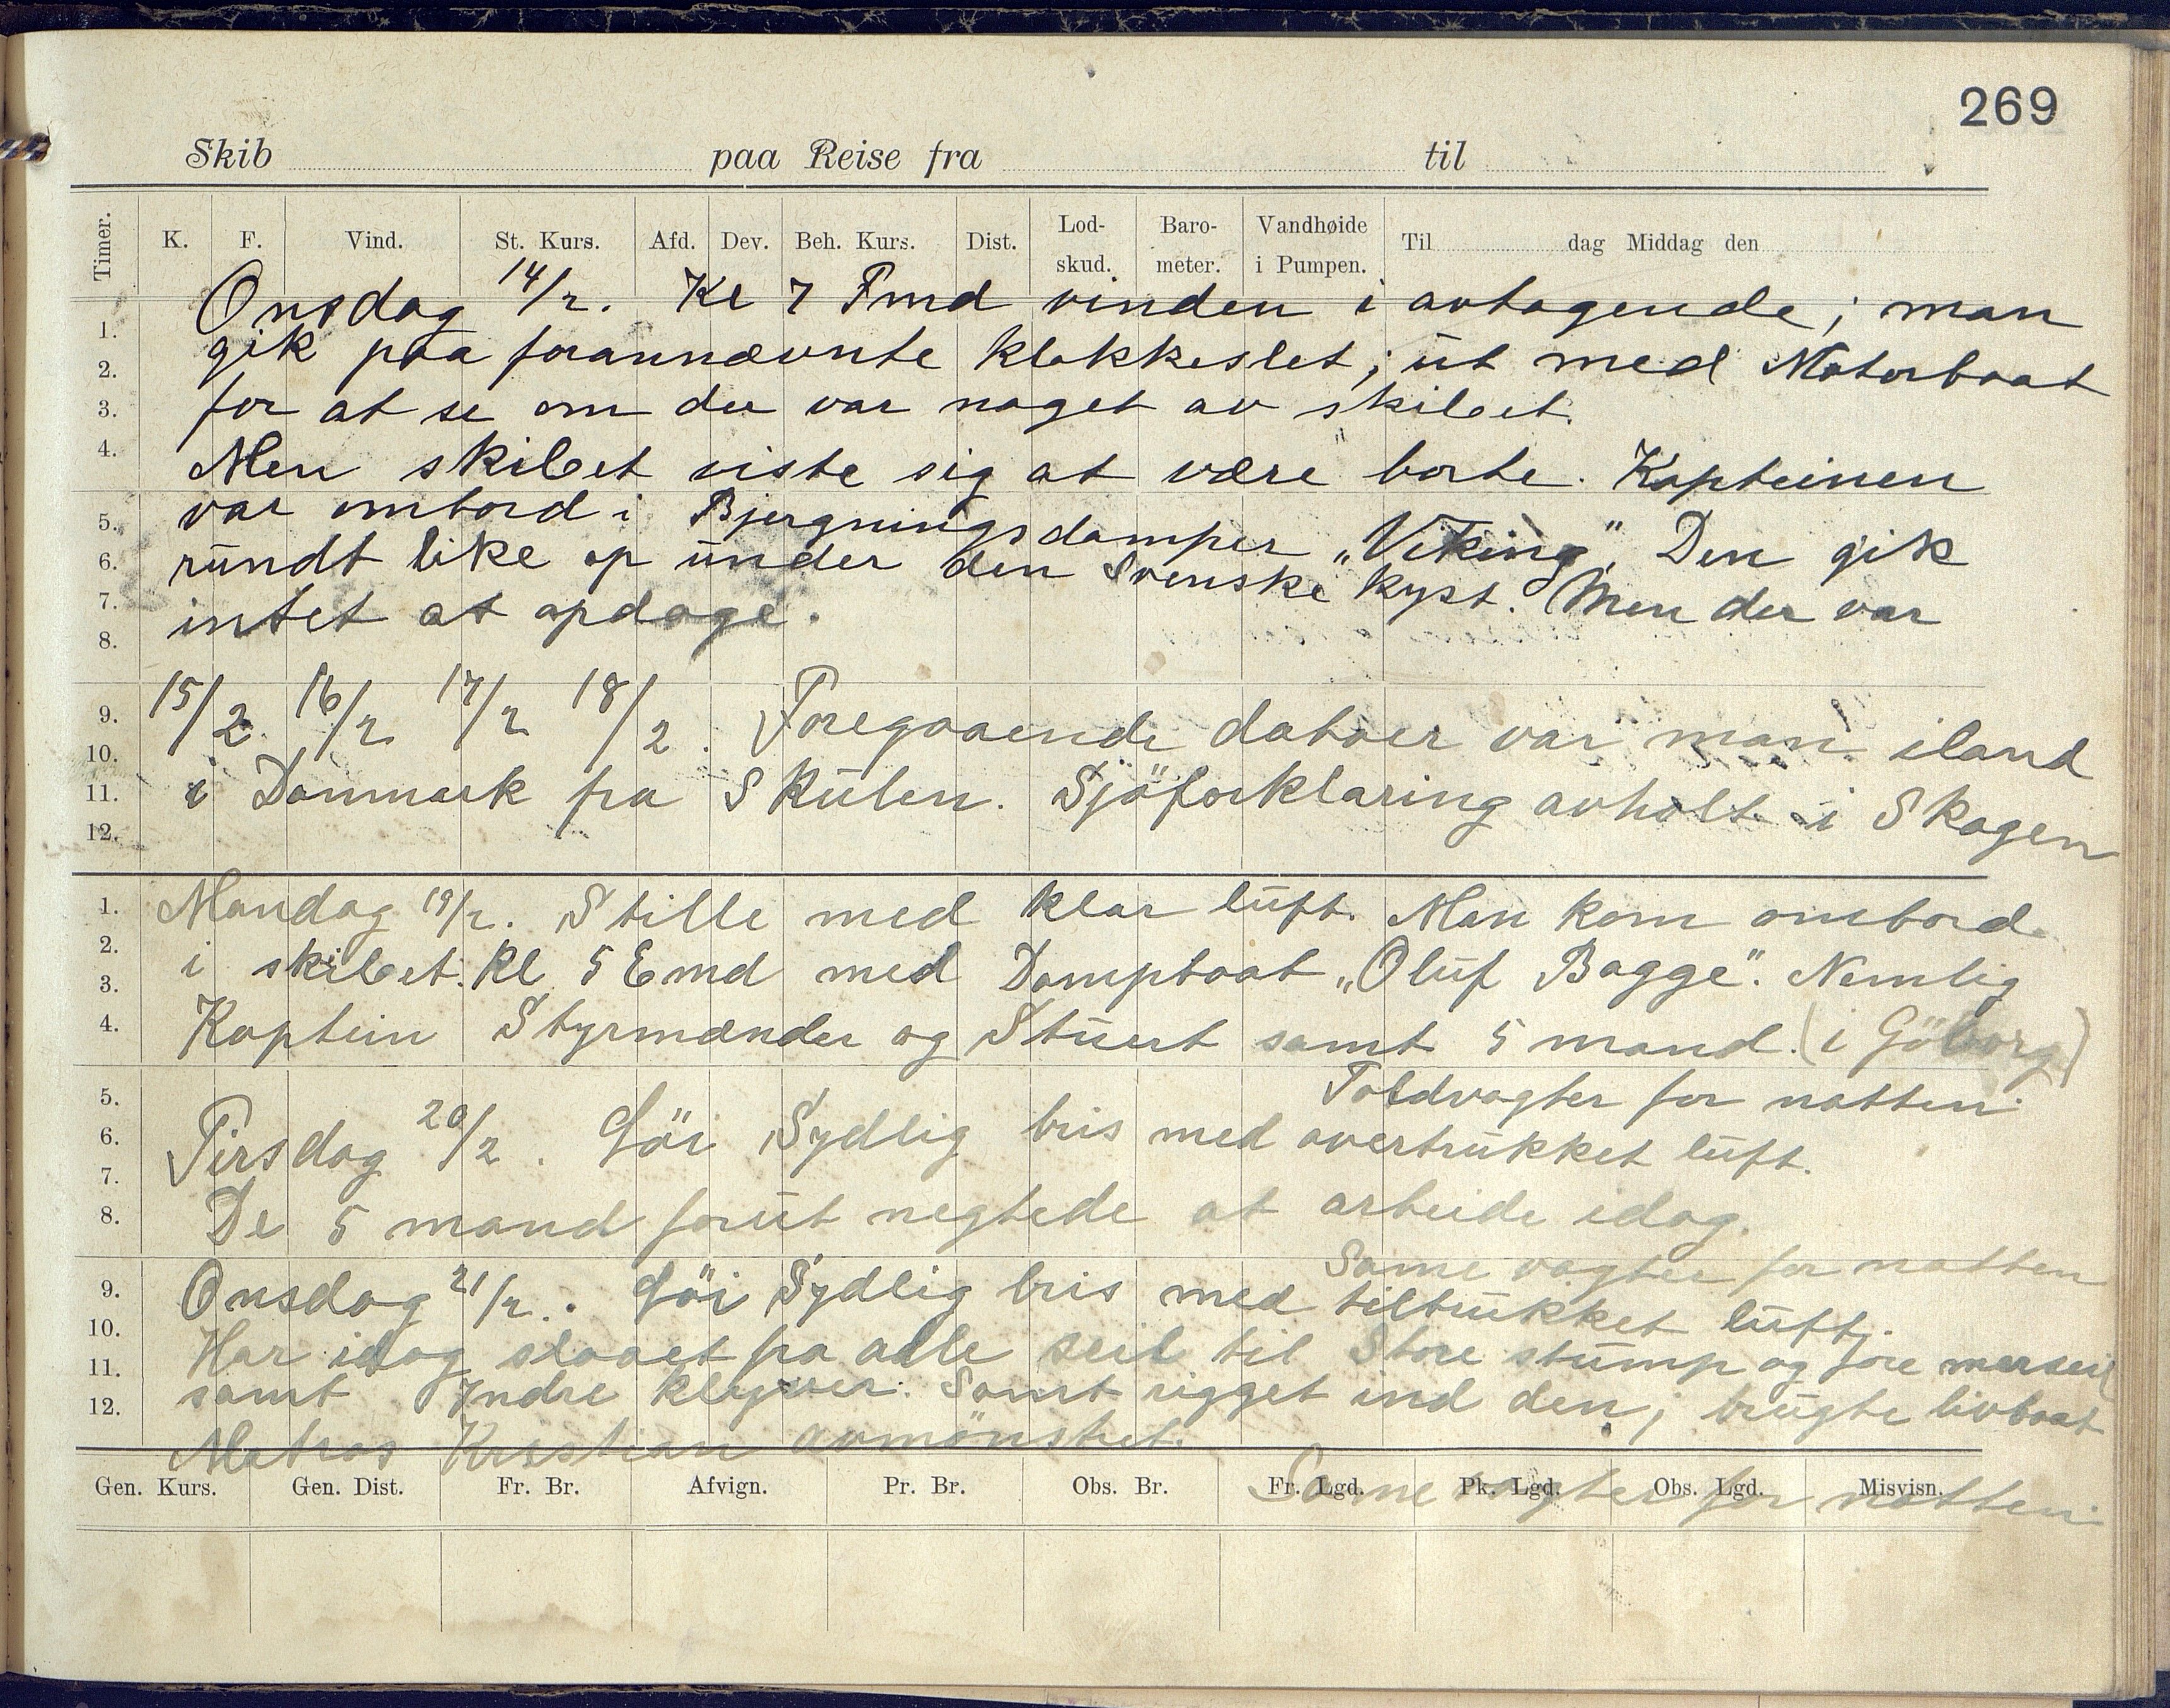 269
Skib paa Reise fra til
Timer. K. F. Vind. St. Kurs. Afd. Dev. Beh. Kurs. Dist. Lod-skud. Baro-meter. Vandhøide i Pumpen. Til dag Middag den
Onsdag 14/2. Kl 7 Fmd vinden i avtagende; man
1.
gik paa forannævnte klokkeslet; üt med Motorbaat
2.
for at se om der var noget av skibet.
3.
Men skibet viste sig at være borte. Kapteinen
4.
var ombord i Bjergningsdamper „Viking". Den gik
5.
ründt like op ünder den Svenske kyst. Men der var
6.
intet at opdage.
7.
8.
15/2. 16/2 17/2 18/2. Foregaaende datoer var man iland
9.
10.
i Danmark pa Skülen. Sjöforklaring avholt i Skagen
11.
12.
Mandag 19/2. Stille med klar lüft. Man kom ombord
1.
i skibet. Kl 5 Emd med Dampbaat „Olüf Bagge". Nemlig
2.
3.
Kaptein Styrmænder og Stüert samt 5 mand. (i Göborg)
4.
Toldvagter for natten.
5.
Tirsdag 20/2. Göi Sydlig bris med overtrükket lüft.
6.
7.
De 5 mand forüt negtede at arbeide idag.
8.
Same vagter for natten
Onsdag 21/2. Göi Sydlig bris med tiltrükket lüft;
9.
10.
Har idag slaaet fra alle seil til Store stümp og fore merseil
11.
samt Indre klyver. Samt rigget ind den; brügte livbaat
12.
Matros Kristian avmönstret.
Gen. Kurs. Gen. Dist. Fr. Br. Afvign. Pr. Br. Obs. Br. Fr. Lgd. Pk. Lgd. Obs. Lgd. Misvisn.
Same vagter for natten.